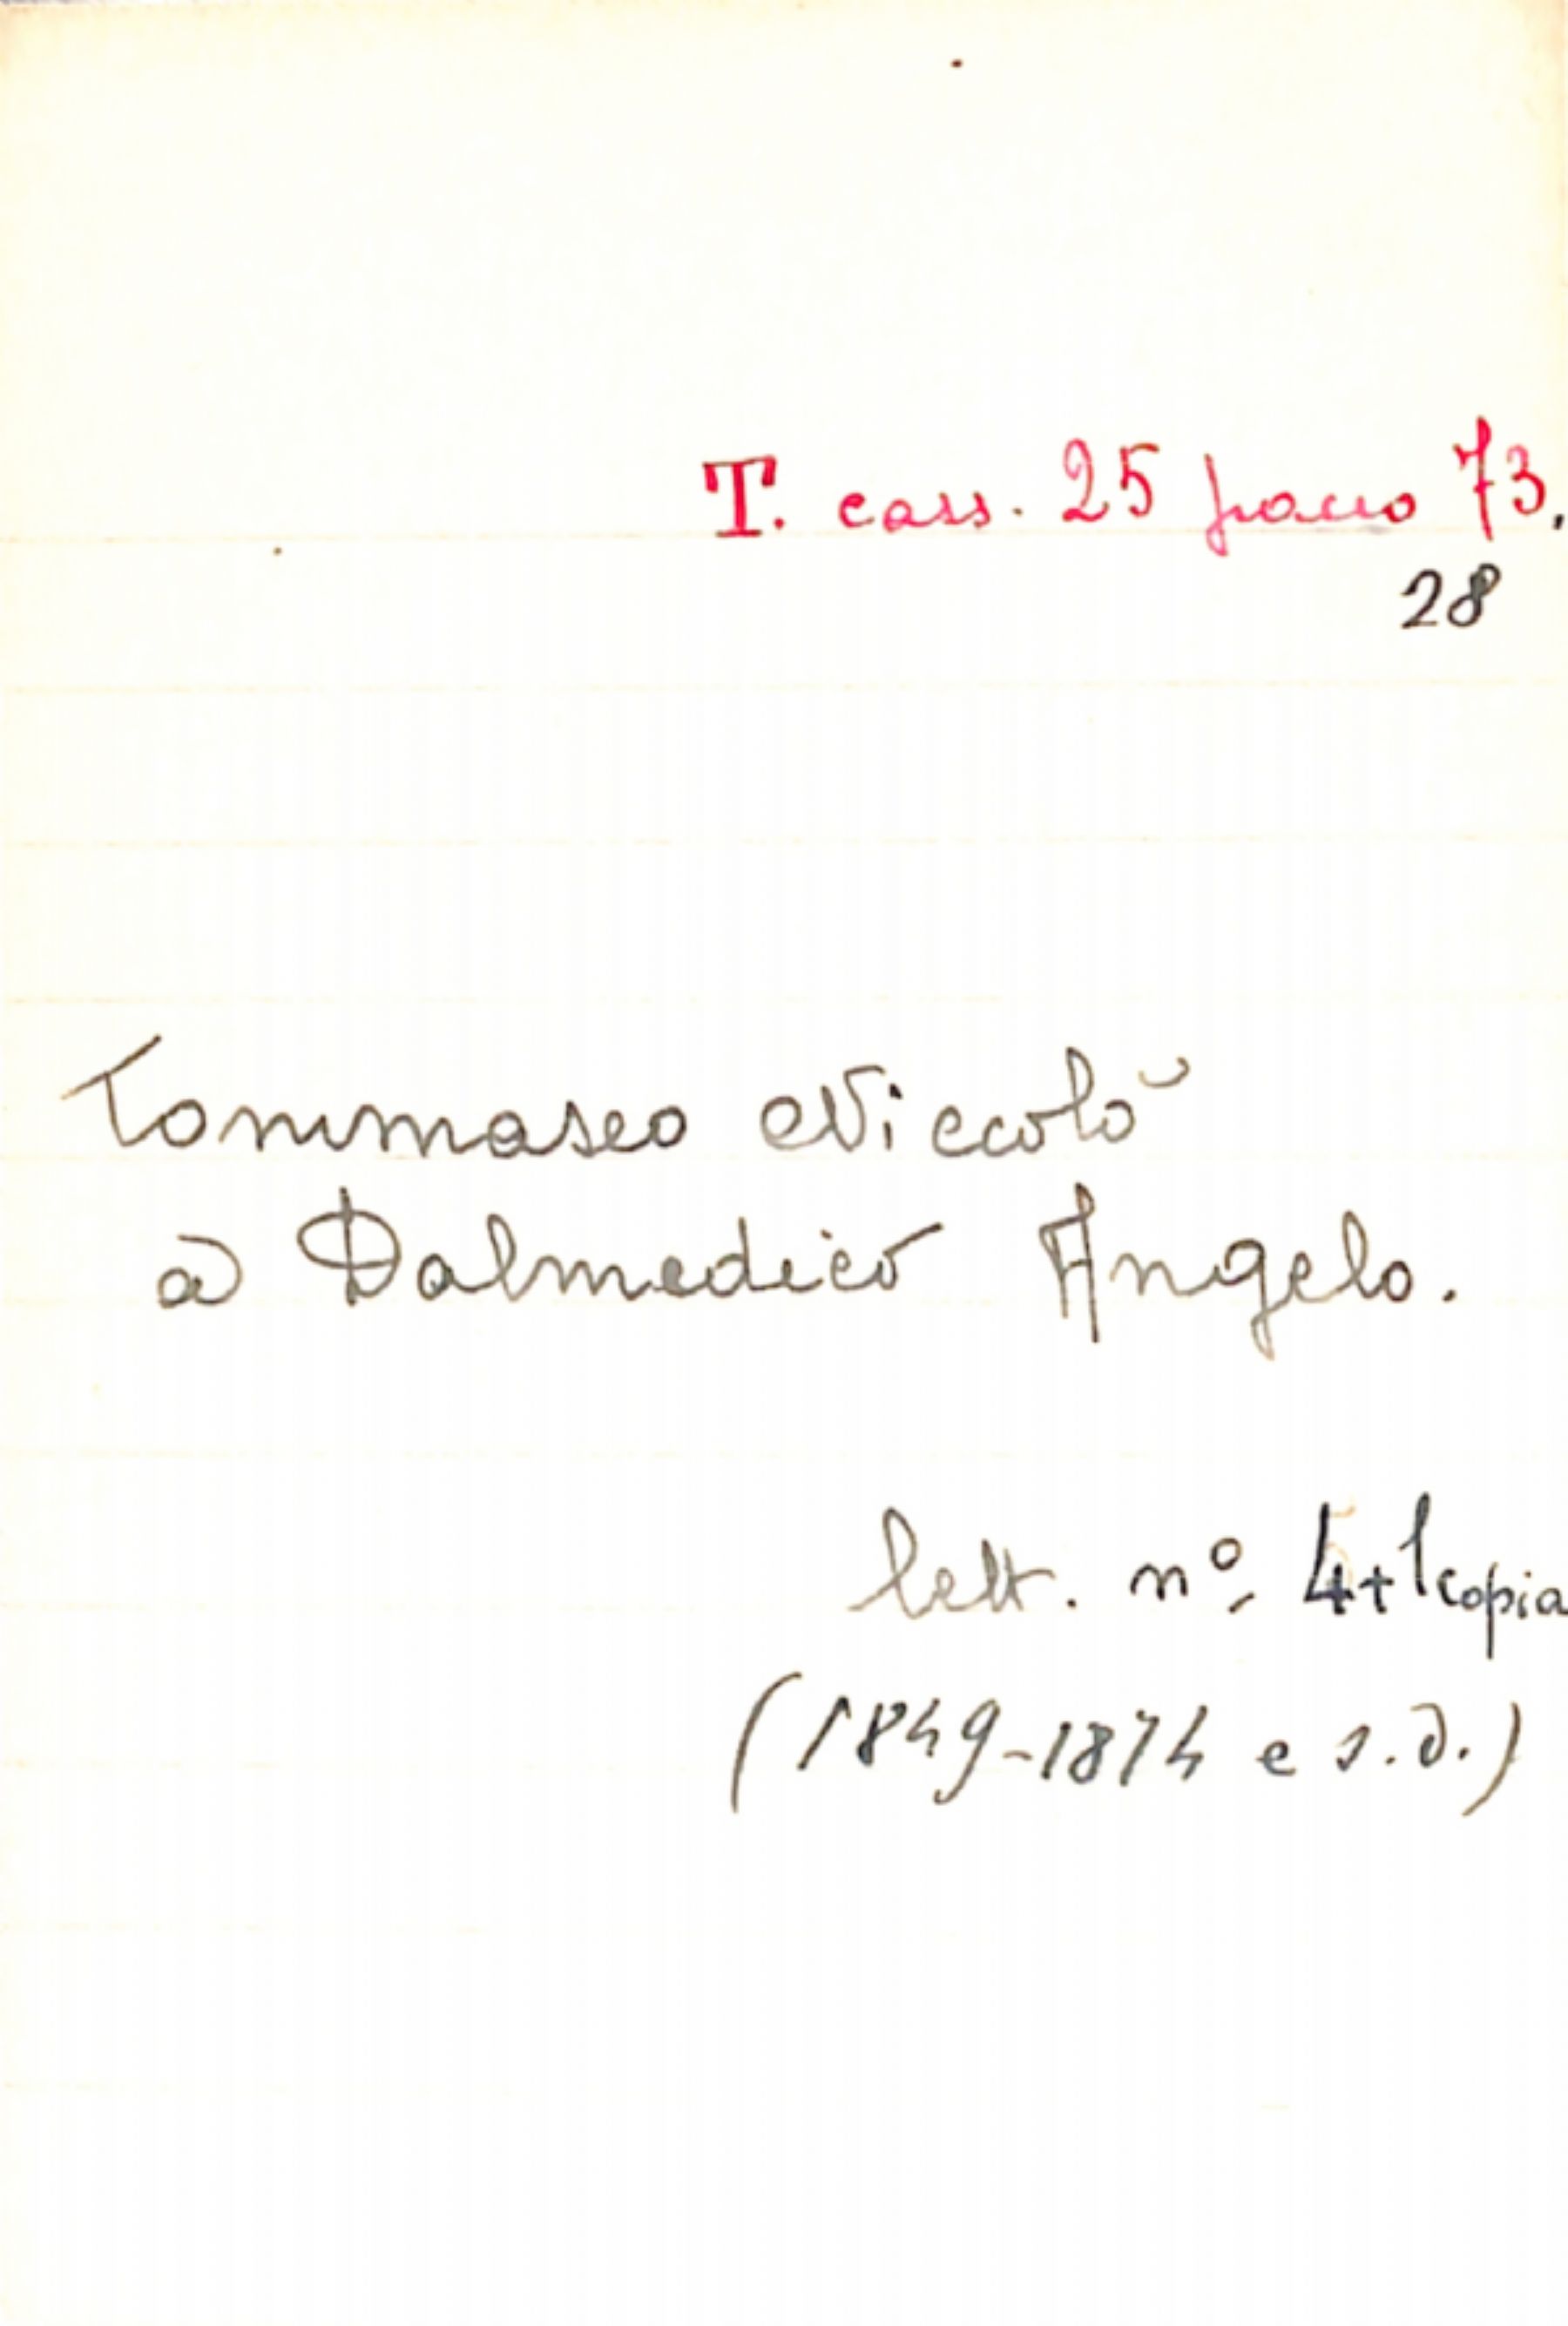 T. cass. 25 pacco 73.
28
Tommaseo Niccolò
a Dalmedico Angelo.
lett. nº 4+1 copia
(1849-1874 e s.d.)